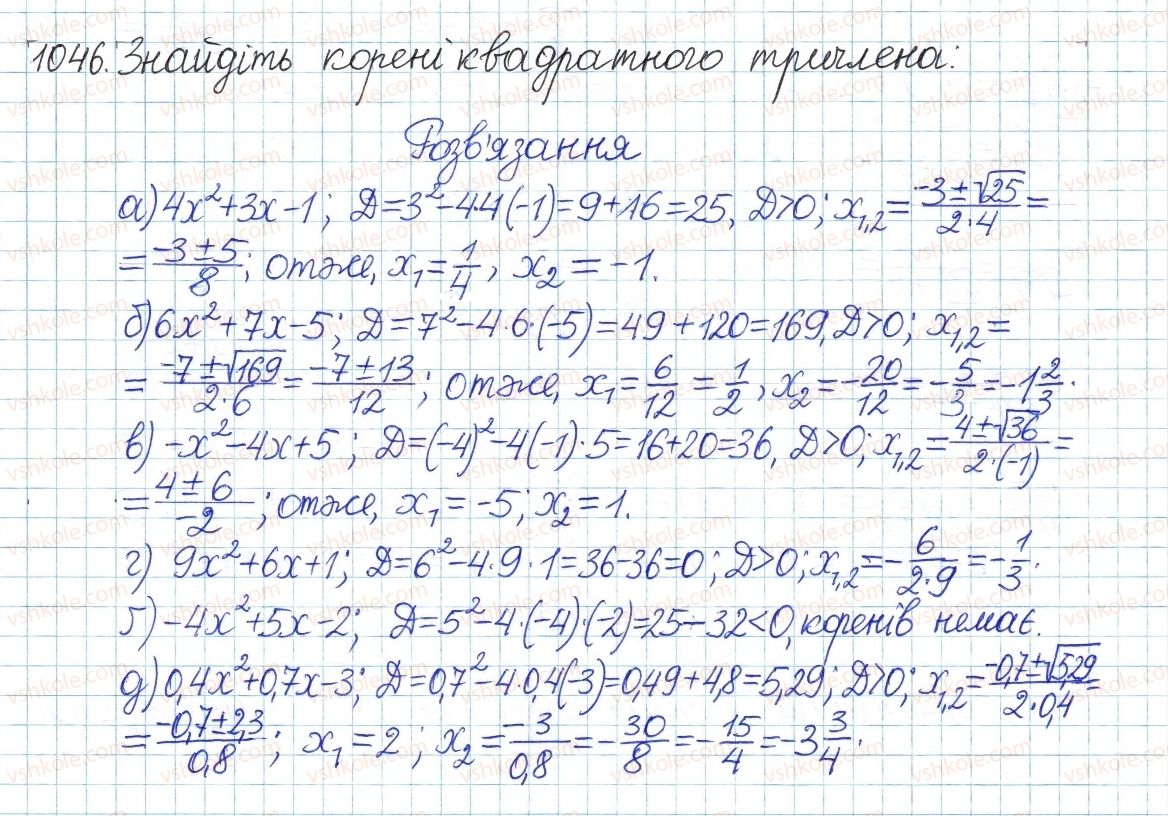 1046. Знайдіть корені квадратного тричлена:
Розв'язання
а) 4x²+3x-1; D=3²-4·4(-1)=9+16=25, D>0; x₁,₂=(-3±√25)/(2·4)=
=(-3±5)/8; отже, x₁=1/4, x₂=-1.
б) 6x²+7x-5; D=7²-4·6·(-5)=49+120=169, D>0; x₁,₂=
=(-7±√169)/(2·6)=(-7±13)/12; отже, x₁=6/12=1/2, x₂=-20/12=-5/3=-1 2/3.
в) -x²-4x+5; D=(-4)²-4(-1)·5=16+20=36, D>0; x₁,₂=(4±√36)/(2·(-1))=
=(4±6)/-2; отже, x₁=-5; x₂=1.
г) 9x²+6x+1; D=6²-4·9·1=36-36=0; D>0; x₁,₂=-6/(2·9)=-1/3.
ґ) -4x²+5x-2; D=5²-4·(-4)·(-2)=25-32<0, коренів немає.
д) 0,4x²+0,7x-3; D=0,7²-4·0,4(-3)=0,49+4,8=5,29; D>0; x₁,₂=(-0,7±√5,29)/(2·0,4)=
=(-0,7±2,3)/0,8; x₁=2; x₂=-3/0,8=-30/8=-15/4=-3 3/4.